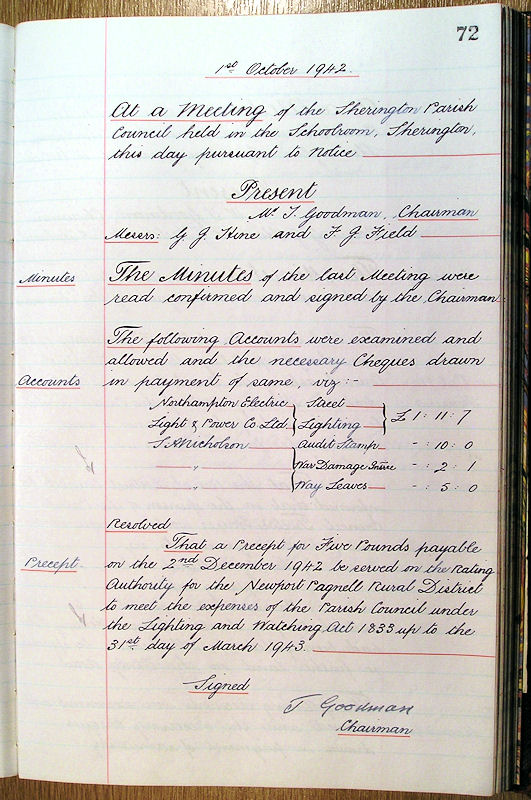 72
1st October 1942.
At a Meeting of the Sherington Parish
Council held in the Schoolroom, Sherington,
this day pursuant to Notice
Present
Mr T. Goodman, Chairman
Messrs: G. J. Hine and F. J. Field
Minutes
The Minutes of the last Meeting were
read confirmed and signed by the Chairman.
The following Accounts were examined and
allowed and the necessary Cheques drawn
Accounts
in payment of same, viz:-
Northampton Electric Street
Light & Power Co Ltd Lighting £1 : 11 : 7
Nicholson Audit Stamp - : 10 : 0
" War Damage Insce - : 2 : 1
" Way Leaves - : 5 : 0
Resolved
That a Precept for Five Pounds payable
Precept
on the 2nd December 1942 be served on the Rating
Authority for the Newport Pagnell Rural District
to meet the expenses of the Parish Council under
the Lighting and Watching Act 1833 up to the
31st day of March 1943.
Signed
T Goodman
Chairman